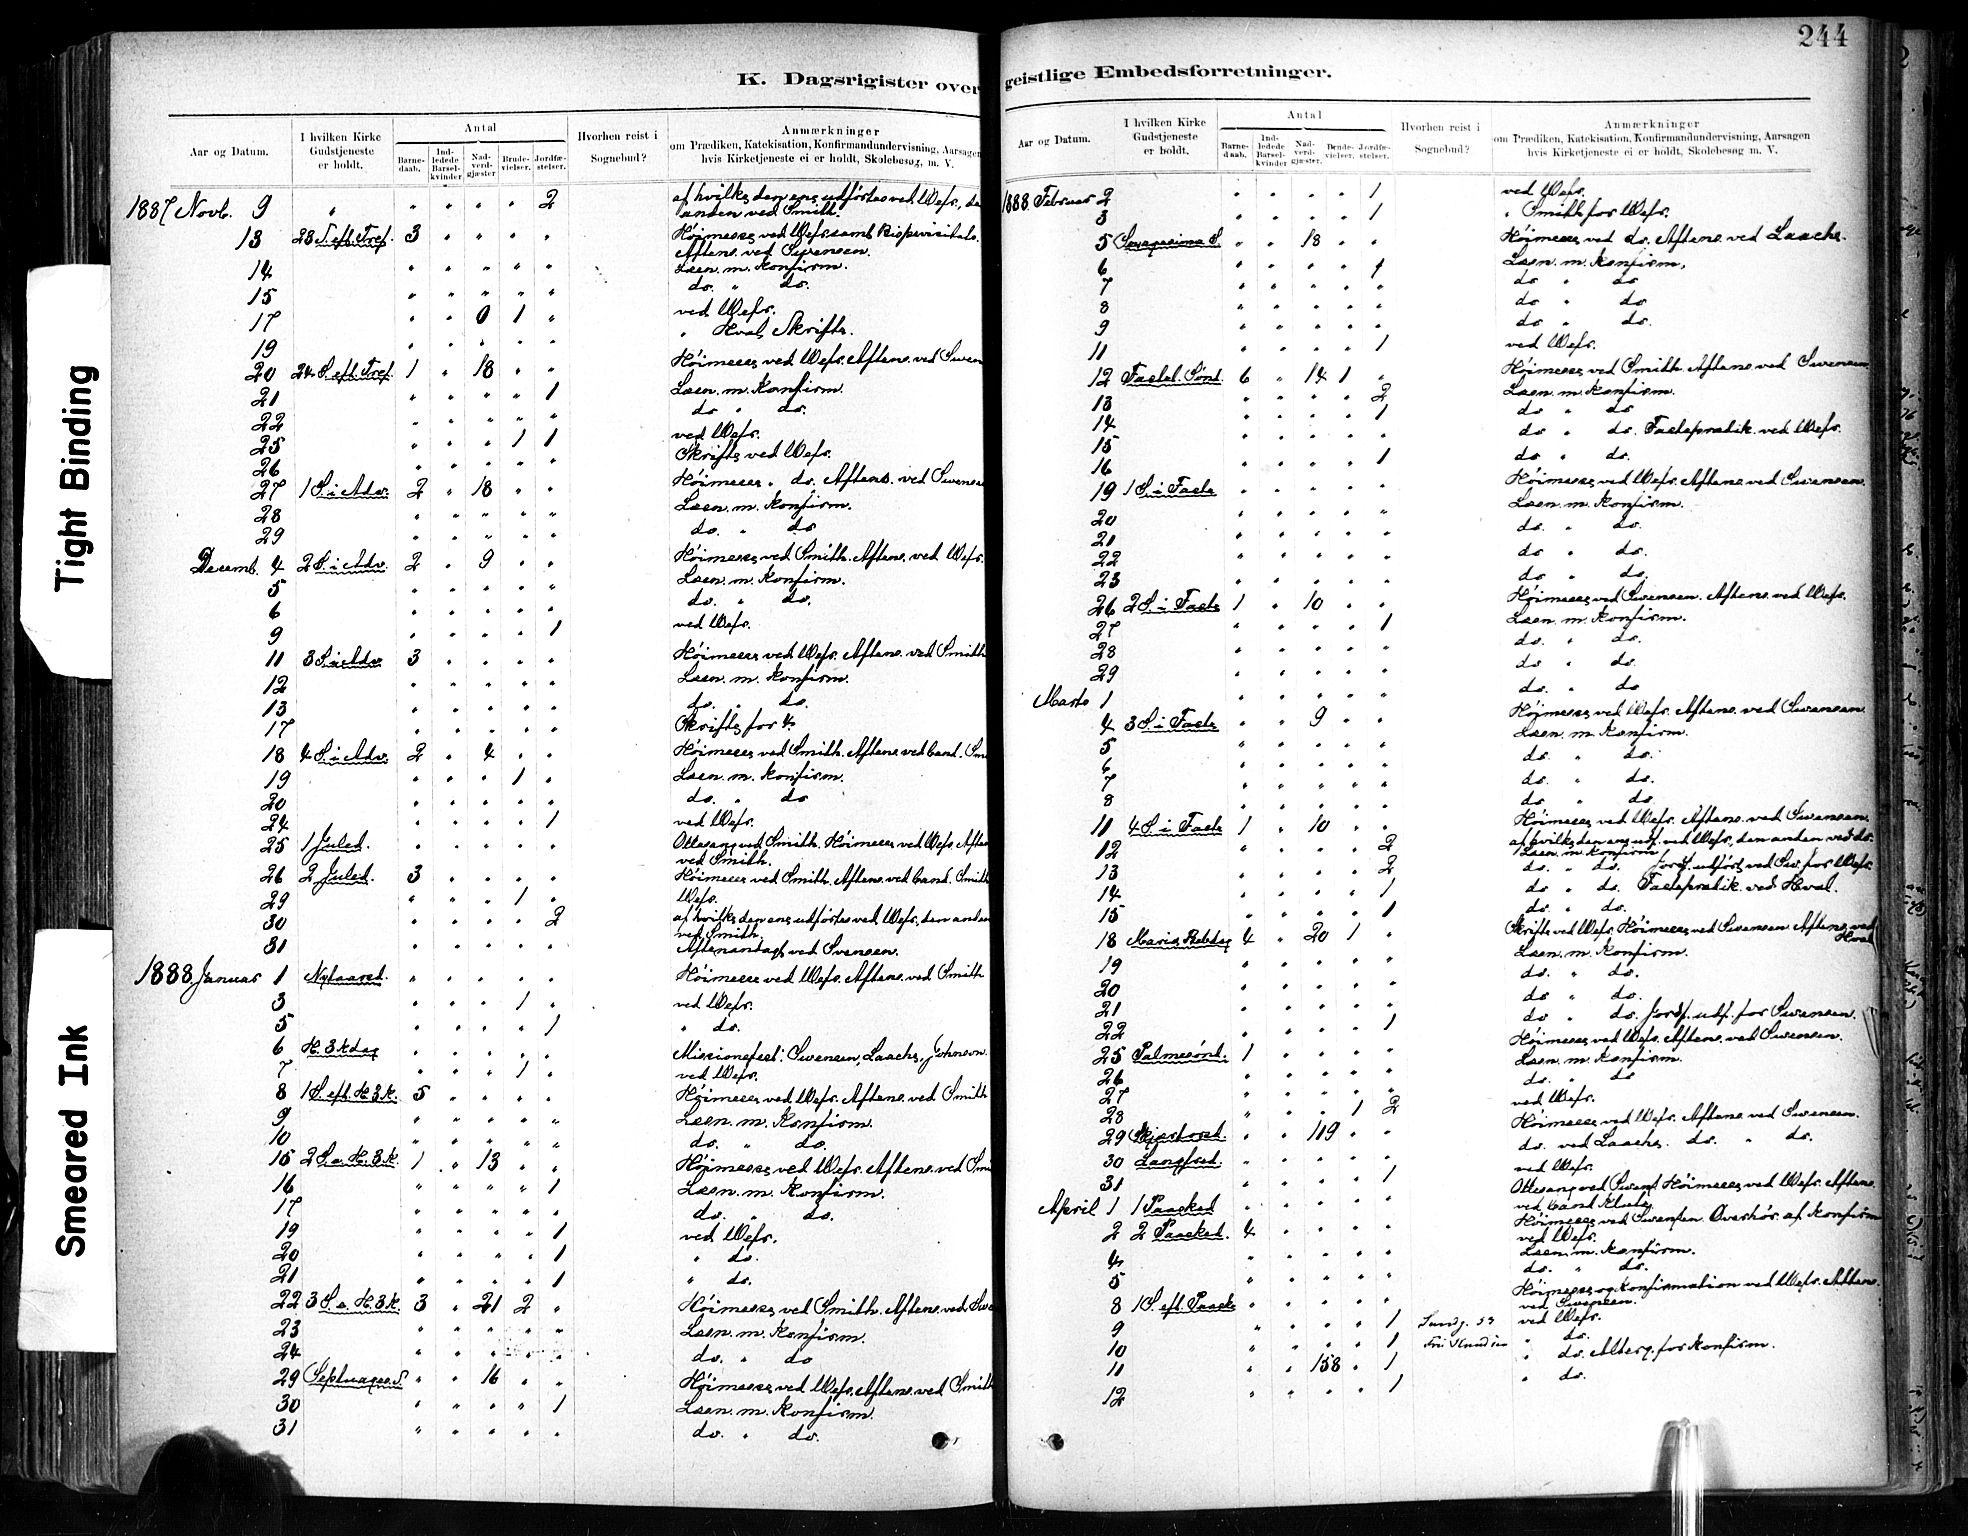 244
K. Dagsrigister over geistlige Embedsforretninger.
Tight Binding
Smeared Ink
Aar og Datum. | I hvilken Kirke Gudstjeneste er holdt. | Antal | Barne-daab. | Ind-ledede Barsel-kvinder | Nad-verd-gjæster | Brude-vielser. | Jordfæ-stelser. | Hvorhen reist i Sognebud? | Anmærkninger om Prædiken, Katekisation, Konfirmandundervisning, Aarsagen hvis Kirketjeneste ei er holdt, Skolebesøg, m. V.
1887 Novb. 9 " " " " " 2 af hvilke den ene udførtes ved Wefr., den
anden ved Smith.
13 23 S. eft. Tref. 3 " " " " Høimesse ved Wefr. samt Bispevisitats.
Aftens. ved Svensen.
14 " " " " " Læsn. m. Konfirm.
15 " " " " " do. " do.
17 " " 0 1 " ved Wefr.
19 " " " " " " Hval, Skrifte.
20 24 S. eft. Tref. 1 " 18 " " Høimesse ved Wefr. Aftens. ved Svens
21 " " " " 1 Læsn. m. Konfirm.
22 " " " " " do " do.
25 " " " 1 1 ved Wefr.
26 " " " " " Skrifte ved Wefr.
27 1 S. i Adv. 2 " 18 " " Høimesse " do. Aftens. ved Svensen
28 " " " " " Læsn. m. Konfirm.
29 " " " " " do. " do
Decemb. 4 2 S. i Adv. 2 " 9 " " Høimesse ved Smith. Aftens. ved Wefr.
5 " " " " " Læsn. m. Konfirm.
6 " " " " " do. " do.
9 " " " " 1 ved Wefr.
11 3 S. i Adv. 3 " " " " Høimesse ved Wefr. Aftens. ved Smith
12 " " " " " Læsn. m. Konfirm.
13 " " " " " do. " do.
17 " " " " " Skrifte for 4.
18 4 S. i Adv. 2 " 4 " " Høimesse ved Smith. Aftens. ved Cand. Sm
19 " " " 1 " Læsn. m. Konfirm.
20 " " " " " do. " do
24 " " " " 1 ved Wefr.
25 1 Juled. " " " " " Ottesang ved Smith. Høimesse ved Wefr. Aften
ved Smith.
26 2 Juled. 3 " " " " Høimesse ved Smith. Aftens. ved Cand. Smith
29 " " " 1 " Wefr.
30 " " " " 2 af hvilke den ene udførtes ved Wefr., den anden
ved Smith.
31 " " " " " Aftenandagt ved Svensen.
1888. Januar 1 Nytaarsd. " " " " " Høimesse ved Wefr. Aftens. ved Smith
3 " " " 1 " ved Wefr.
5 " " " " 1 " do.
6 H. 3 Kdag " " " " " Missionsfest: Svensen, Laache, Johnson.
7 " " " 1 " ved Wefr.
8 1 S. eft. H. 3 K. 5 " " " " Høimesse ved Wefr. Aftens. ved Smith
9 " " " " " Læsn. m. Konfirm.
10 " " " " " do. " do.
15 2 S. e. H. 3 K. 1 " 13 " " Høimesse ved Wefr. Aftens. ved Smi
16 " " " " 1 Læsn. m. Konfirm.
17 " " " " " do. " do.
19 " " " " 1 ved Wefr.
20 " " " " 1 " do.
21 " " " " 1 " do.
22 3 S. e. H. 3 K. 3 " 21 2 " Høimesse ved Smith. Aftens. ved Sve
23 " " " " " Læsn. m. Konfirm.
24 " " " " " do. " do
29 Septuages. S. " " 16 " " Høimesse ved Wefr. Aftens. ved Smith
30 " " " " 1 Læsn. m. Konfirm.
31 " " " " " do. " do.
Aar og Datum. | I hvilken Kirke Gudstjeneste er holdt. | Antal | Barne-daab. | Ind-ledede Barsel-kvinder | Nad-verd-gjæster. | Brude-vielser. | Jordfæ-stelser. | Hvorhen reist i Sognebud? | Anmærkninger om Prædiken, Katekisation, Konfirmandundervisning, Aarsagen hvis Kirketjeneste ei er holdt, Skolebesøg, m. V.
1888. Februar 2 " " " " 1 ved Wefr.
3 " " " " 1 " Smith for Wefr.
5 Sexagesima S. " " 18 " " Høimesse ved do. Aftens. ved Laache.
6 " " " " 1 Læsn. m. Konfirm.
7 " " " " " do " do
8 " " " " " do " do
9 " " " " " do " do.
11 " " " " 1 ved Wefr.
12 Fastel. Sønd. 6 " 14 1 " Høimesse ved Smith. Aftens. ved Svensen
13 " " " " 2 Læsn. m. Konfirm.
14 " " " " 1 do " do
15 " " " " " do " do. Fasteprædik. ved Wefr.
16 " " " " 1 do " do.
19 1 S. i Faste " " " " " Høimesse ved Wefr. Aftens. ved Svensen.
20 " " " " " Læsn. m. Konfirm.
21 " " " " " do. " do.
22 " " " " " do " do.
23 " " " " " do " do.
26 2 S. i Faste 1 " 10 " " Høimesse ved Svensen. Aftens. ved Wefr.
27 " " " " 1 Læsn. m. Konfirm.
28 " " " " " do. " do.
29 " " " " " do " do.
Marts 1 " " " " " do. " do
4 3 S. i Faste " " 9 " " Høimesse ved Wefr. Aftens. ved Svensen.
5 " " " " " Læsn. m. Konfirm.
6 " " " " " do " do.
7 " " " " " do. " do.
8 " " " " " do " do
11 4 S. i Faste 1 " 10 " " Høimesse ved Wefr. Aftens. ved Svensen.
12 " " " " 2 af hvilke den ene udf. ved Wefr., den anden ved do.
Læsn. m. Konfirm
13 " " " " 2 do. " do. Jordf. udført ved Sv. for Wefr.
14 " " " " 1 do " do. Fasteprædik. ved Hval.
15 " " " " 1 do " do.
18 Mariæ Bebdag 4 " 20 1 " Skrifte ved Wefr. Høimesse ved Svensen Aftens. ved
Hval
19 " " " " " Læsn. m. Konfirm.
20 " " " " " do. " do.
21 " " " " " do " do.
22 " " " " 1 do " do. Jordf. udf. for Svensen.
25 Palmesønd. 1 " " " " Høimesse ved Wefr. Aftens. ved Svensen.
26 " " " " " Læsn. m. Konfirm.
27 " " " " " do. " do
28 " " " 1 2 ved Wefr.
29 Skjærtorsd. " " 119 " " Høimesse ved Wefr. Aftens. ved Svensen.
30 Langfred. " " " " " do. ved Laache. do. " do.
31 " " " " 1 ved Wefr.
April 1 1 Paasked " " " " " Ottesang ved Svens. Høimesse ved Wefr. Aftens.
ved Cand
2 2 Paasked. 4 " " " " Høimesse ved Svensen. Overhør. af Konfirm
ved Wefr.
4 " " " " " Læsn. m. Konfirm.
5 " " " " " do. " do.
8 1 S. eft. Paaske " " " " " Høimesse og Konfirmation ved Wefr. Aftens.
ved Svensen.
9 " " " " 1 ved Wefr.
10 " " " " 1 " do.
11 " " 158 " 1 " do. Alterg. for Konfirm.
12 " " " " 1 " do.